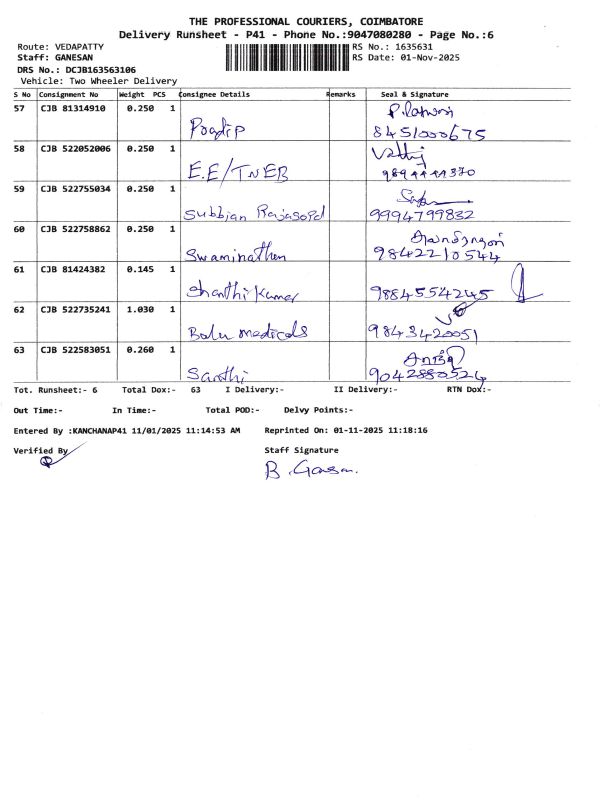 THE PROFESSIONAL COURIERS, COIMBATORE
Delivery Runsheet - P41 - Phone No.:9047080280 - Page No.:6
Route: VEDAPATTY RS No.: 1635631
Staff: GANESAN RS Date: 01-Nov-2025
DRS No.: DCJB163563106
Vehicle: Two Wheeler Delivery
S No Consignment No Weight PCS Consignee Details Remarks Seal & Signature
57 CJB 81314910 0.250 1
8451000675
58 CJB 522052006 0.250 1
E.E/TNEB
59 CJB 522755034 0.250 1
Subbian 9994799832
60 CJB 522758862 0.250 1
Swaminathan 9842210544
61 CJB 81424382 0.145 1
Shanthi Kumar 9884554245
62 CJB 522735241 1.030 1
Balu medicals 9843420051
63 CJB 522583051 0.260 1
9042880526
Tot. Runsheet:- 6 Total Dox:- 63 I Delivery:- II Delivery:- RTN Dox:-
Out Time:- In Time:- Total POD:- Delvy Points:-
Entered By :KANCHANAP41 11/01/2025 11:14:53 AM Reprinted On: 01-11-2025 11:18:16
Verified By Staff Signature